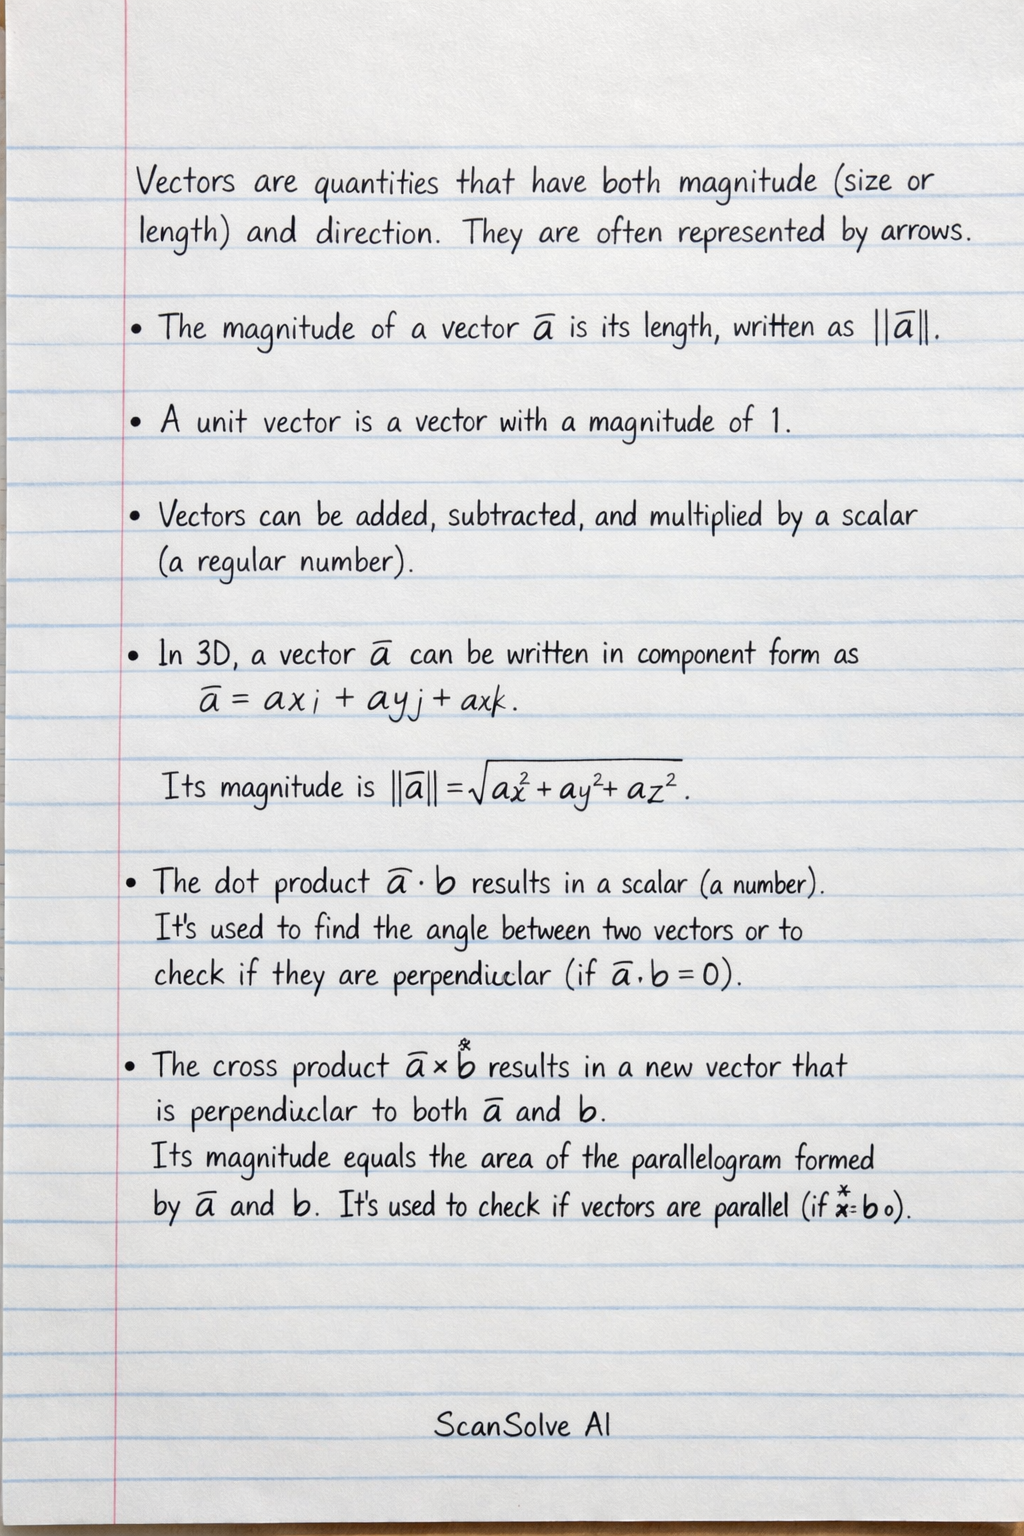 Vectors are quantities that have both magnitude (size or
length) and direction. They are often represented by arrows.
• The magnitude of a vector a̅ is its length, written as ||a̅||.
• A unit vector is a vector with a magnitude of 1.
• Vectors can be added, subtracted, and multiplied by a scalar
(a regular number).
• In 3D, a vector a̅ can be written in component form as
a̅ = axi + ayj + axk.
Its magnitude is ||a̅|| = √(ax² + ay² + az²).
• The dot product a̅ · b results in a scalar (a number).
It's used to find the angle between two vectors or to
check if they are perpendiuclar (if a̅ · b = 0).
• The cross product a̅ × b results in a new vector that
is perpendiuclar to both a̅ and b.
Its magnitude equals the area of the parallelogram formed
by a̅ and b. It's used to check if vectors are parallel (if x = b 0).
ScanSolve AI